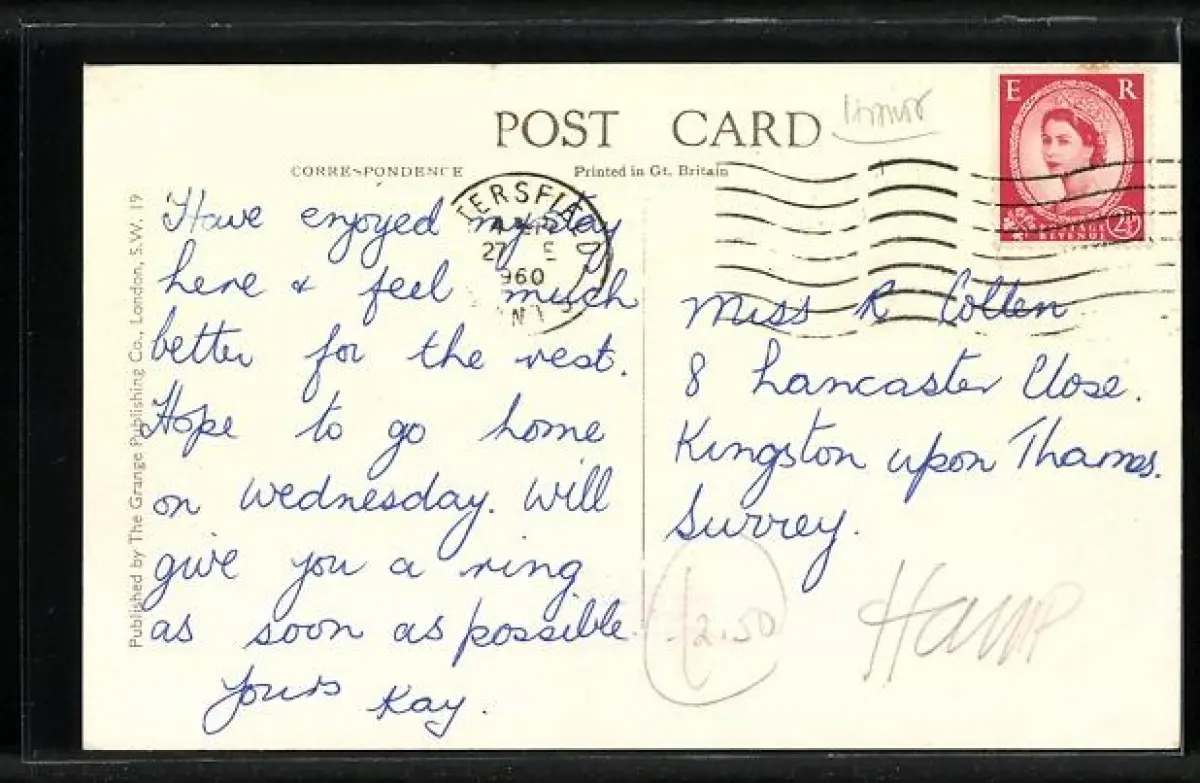 POST CARD
CORRESPONDENCE
Printed in Gt. Britain
E R
2½D
REVENUE
TERSFIELD
27 E
960
Have enjoyed my stay
here & feel much
better for the rest.
Hope to go home
on Wednesday. Will
give you a ring
as soon as possible.
Yours Kay.
Miss R Collen
8 Lancaster Close.
Kingston upon Thames.
Surrey.
2.50
Published by The Grange Publishing Co., London, S.W. 19